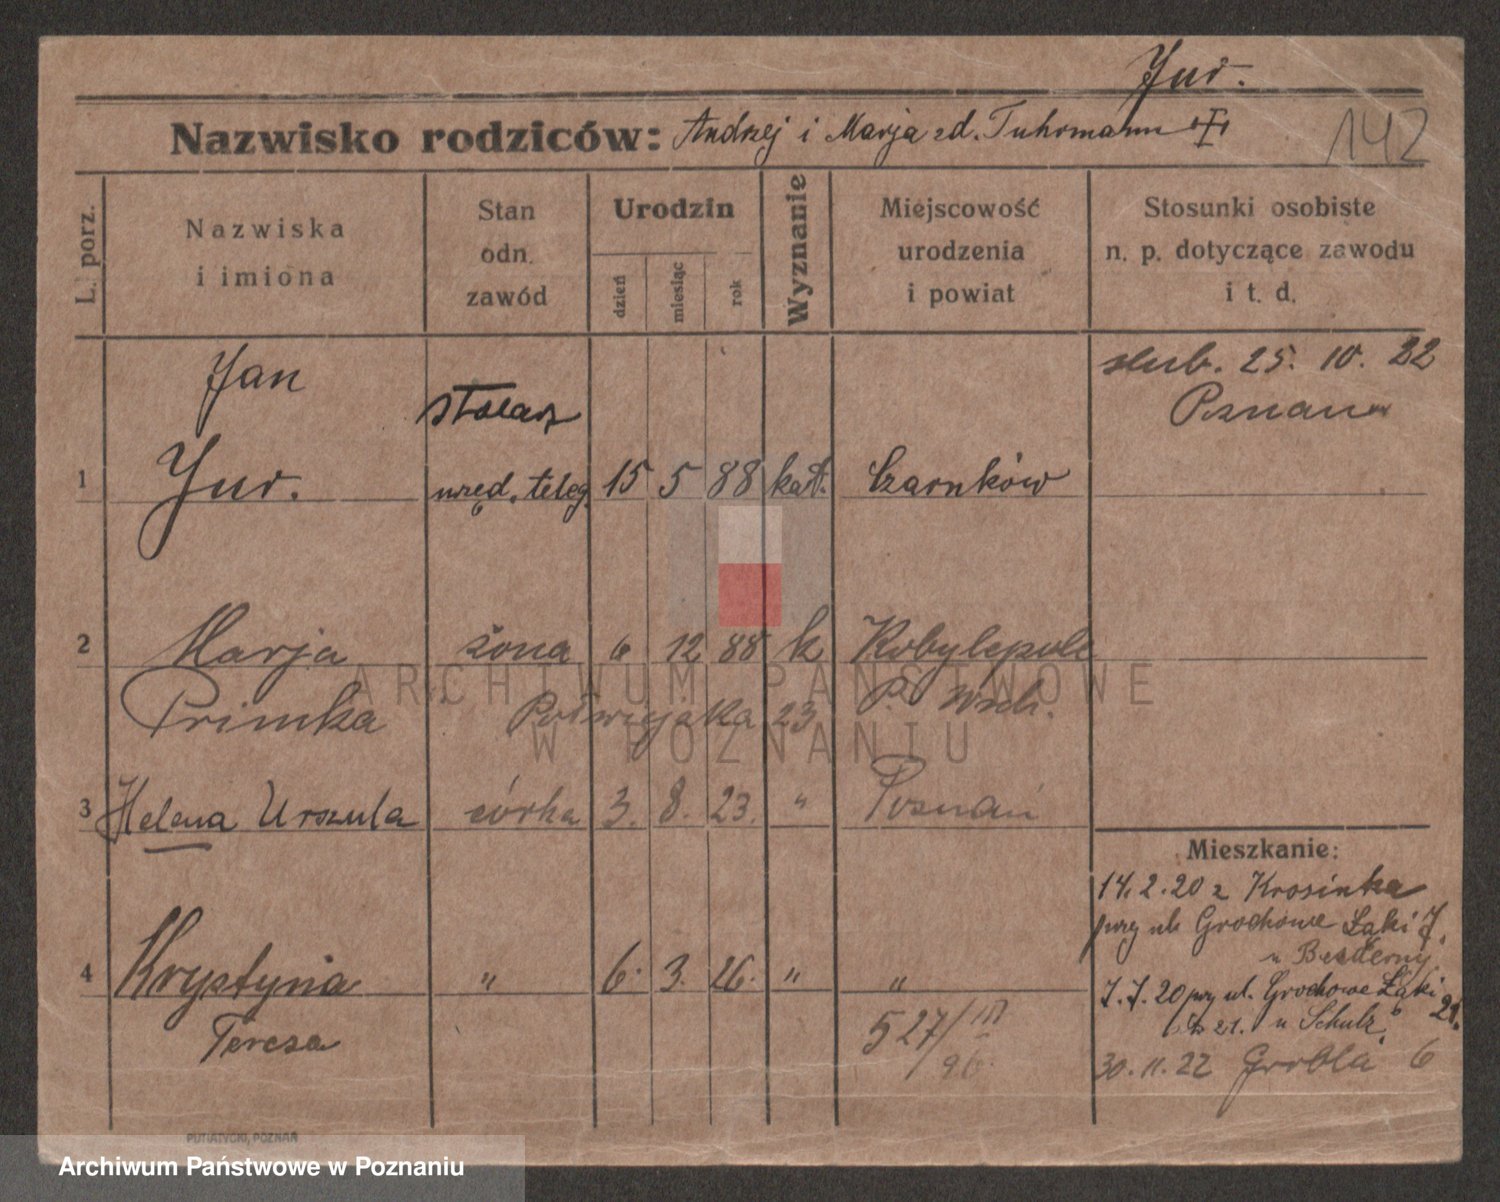 Jur.
Nazwisko rodziców: Andrzej i Marja zd. Tuhrmann
142
L. porz.
Nazwiska
i imiona
Stan
odn.
zawód
Urodzin
dzień
miesiąc
rok
Wyznanie
Miejscowość
urodzenia
i powiat
Stosunki osobiste
n. p. dotyczące zawodu
i t. d.
Jan
stolarz
ślub. 25. 10. 22
Poznań
1 Jur. urzęd. teleg. 15 5 88 kat. Czarnków
2 Marja żona 6 12 88 k Kobylepole
Primka 23 P. Wsch.
3 Helena Urszula córka 3. 8. 23. " Poznań
Mieszkanie:
14. 2. 20 z Krosinka
przy ul. Grochowe Łąki 7.
u
4 Krystyna " 6. 3. 26. " "
7. 7. 20 przy ul. Grochowe Łąki
21. u Schulz
Teresa
527/III
96.
30. 11. 22 Grobla 6
ARCHIWUM PAŃSTWOWE
W POZNANIU
PUTIATYCKI, POZNAŃ
Archiwum Państwowe w Poznaniu